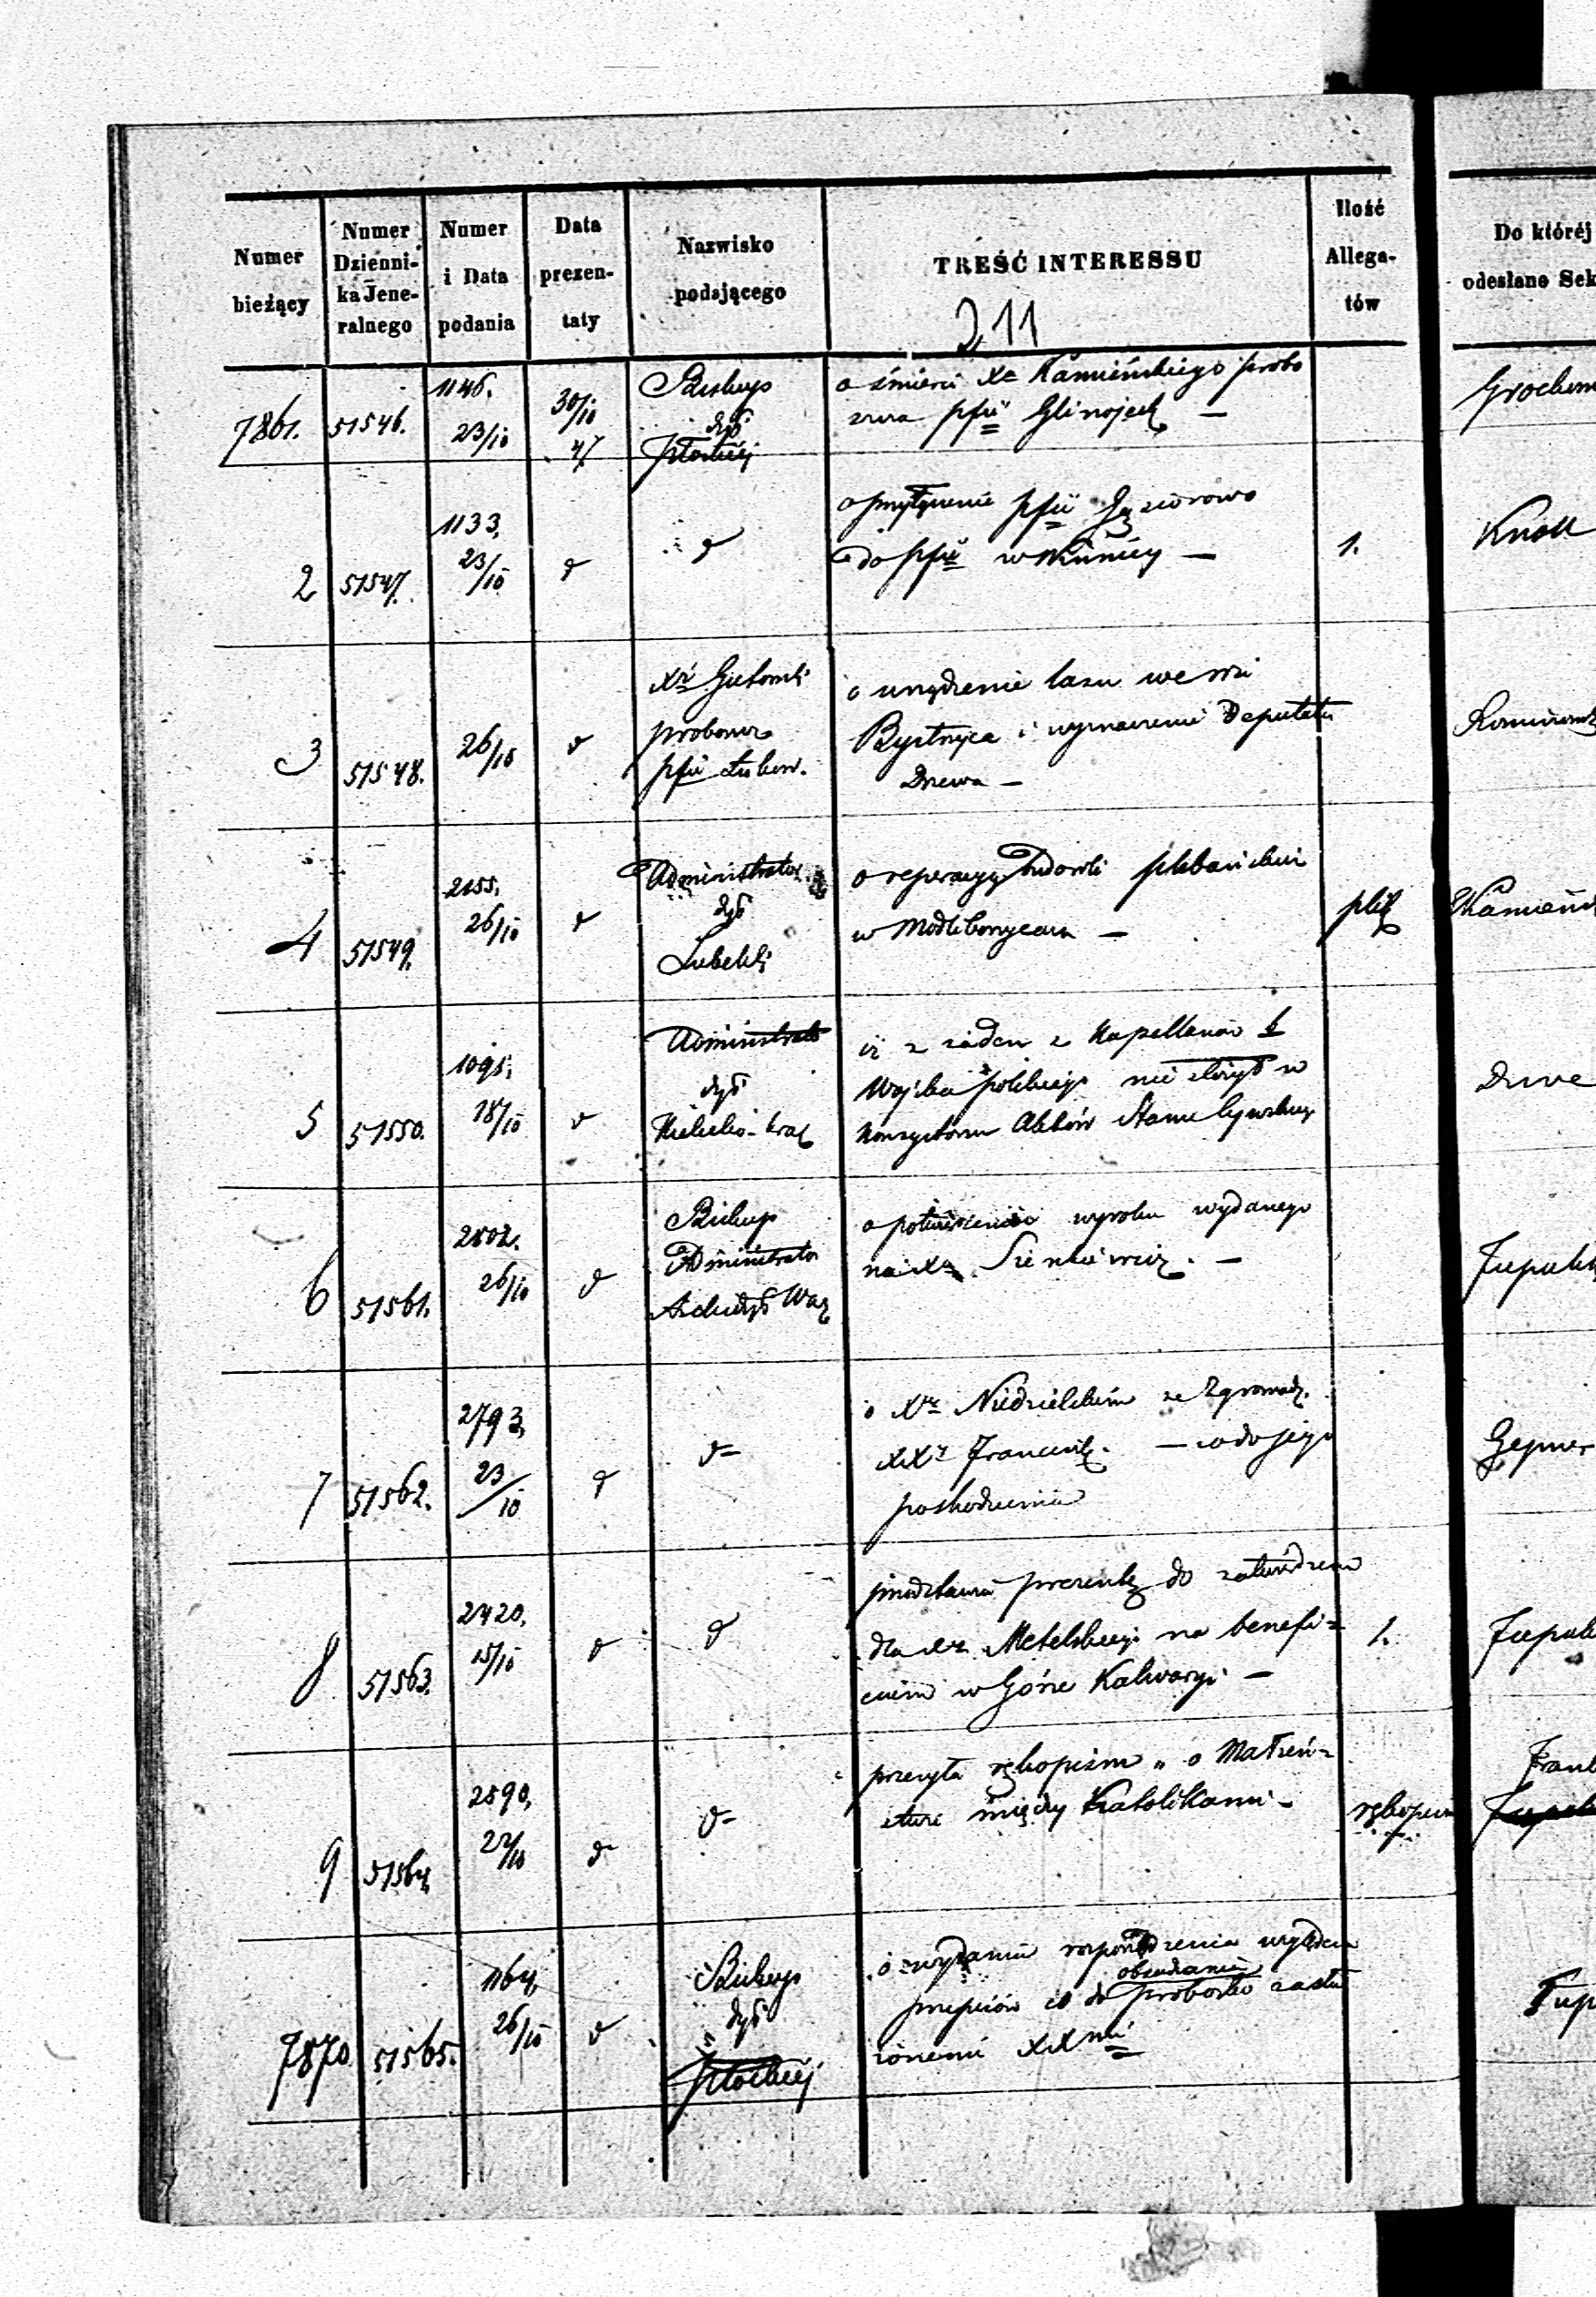 Numer bieżący
Numer Dzienni-ka Jene-ralnego
Numer i Data podania
Data prezen-taty
Nazwisko podającego
TREŚĆ INTERESSU
Ilość Allega-tów
Do któréj odesłano Sek
211
7861. 51546. 1146. 23/10 30/10 47 Biskup dyś Płockiéj
o śmierci Xa Kamieńskiego probo
szcza pfii Glinojeck —
2 51547. 1133, 23/10 d d
o przyłączenie pfii Jęziorowo
do pfii w — 1. Knoll
3 51548. 26/10 d Xdz proboszcz pfii
o urządzenie lasu we wsi
Bystrzyca i wyznaczenie Deputatu
Drzewa —
4 51549. 2155. 26/10 d Administrator dyś Lubelski
o reperacyę budowli plebańskich
w Modliborzycach — plik
5 51550. 1095, 18/10 d Administrator dyś Kielecko-Krak
iż żaden z Kapellanów b
Wojska polskiego nie złożył w
Konsystorzu Aktów Stanu Cywilnego
6 51561. 2802. 26/10 d Biskup Administrator Archidyś War
o potwierdzenie wyroku wydanego
na Xa Sienkiewicz. —
7 51562. 2793, 23/10 d d-
o Xdz Niedzielskim ze Zgromadz.
XXy Francisz. — co do jego
poszkodzenia
8 51563. 2420, 15/10 d d
przedstawia prezentę do zatwierdzenia
dla Xa Metelskiego na benefi-
cium w Górze Kalwaryi — 1.
9 51564. 2890, 22/10 d d-
przesyła rękopism „o Małżeń-
stwie między Katolikami - rękopism
7870. 51565. 1164, 26/10 d Biskup dyś Płockiéj
o wydanie rozporządzenia względem
przepisów co do obsadzania probostw zasłu
żonemi XXmi